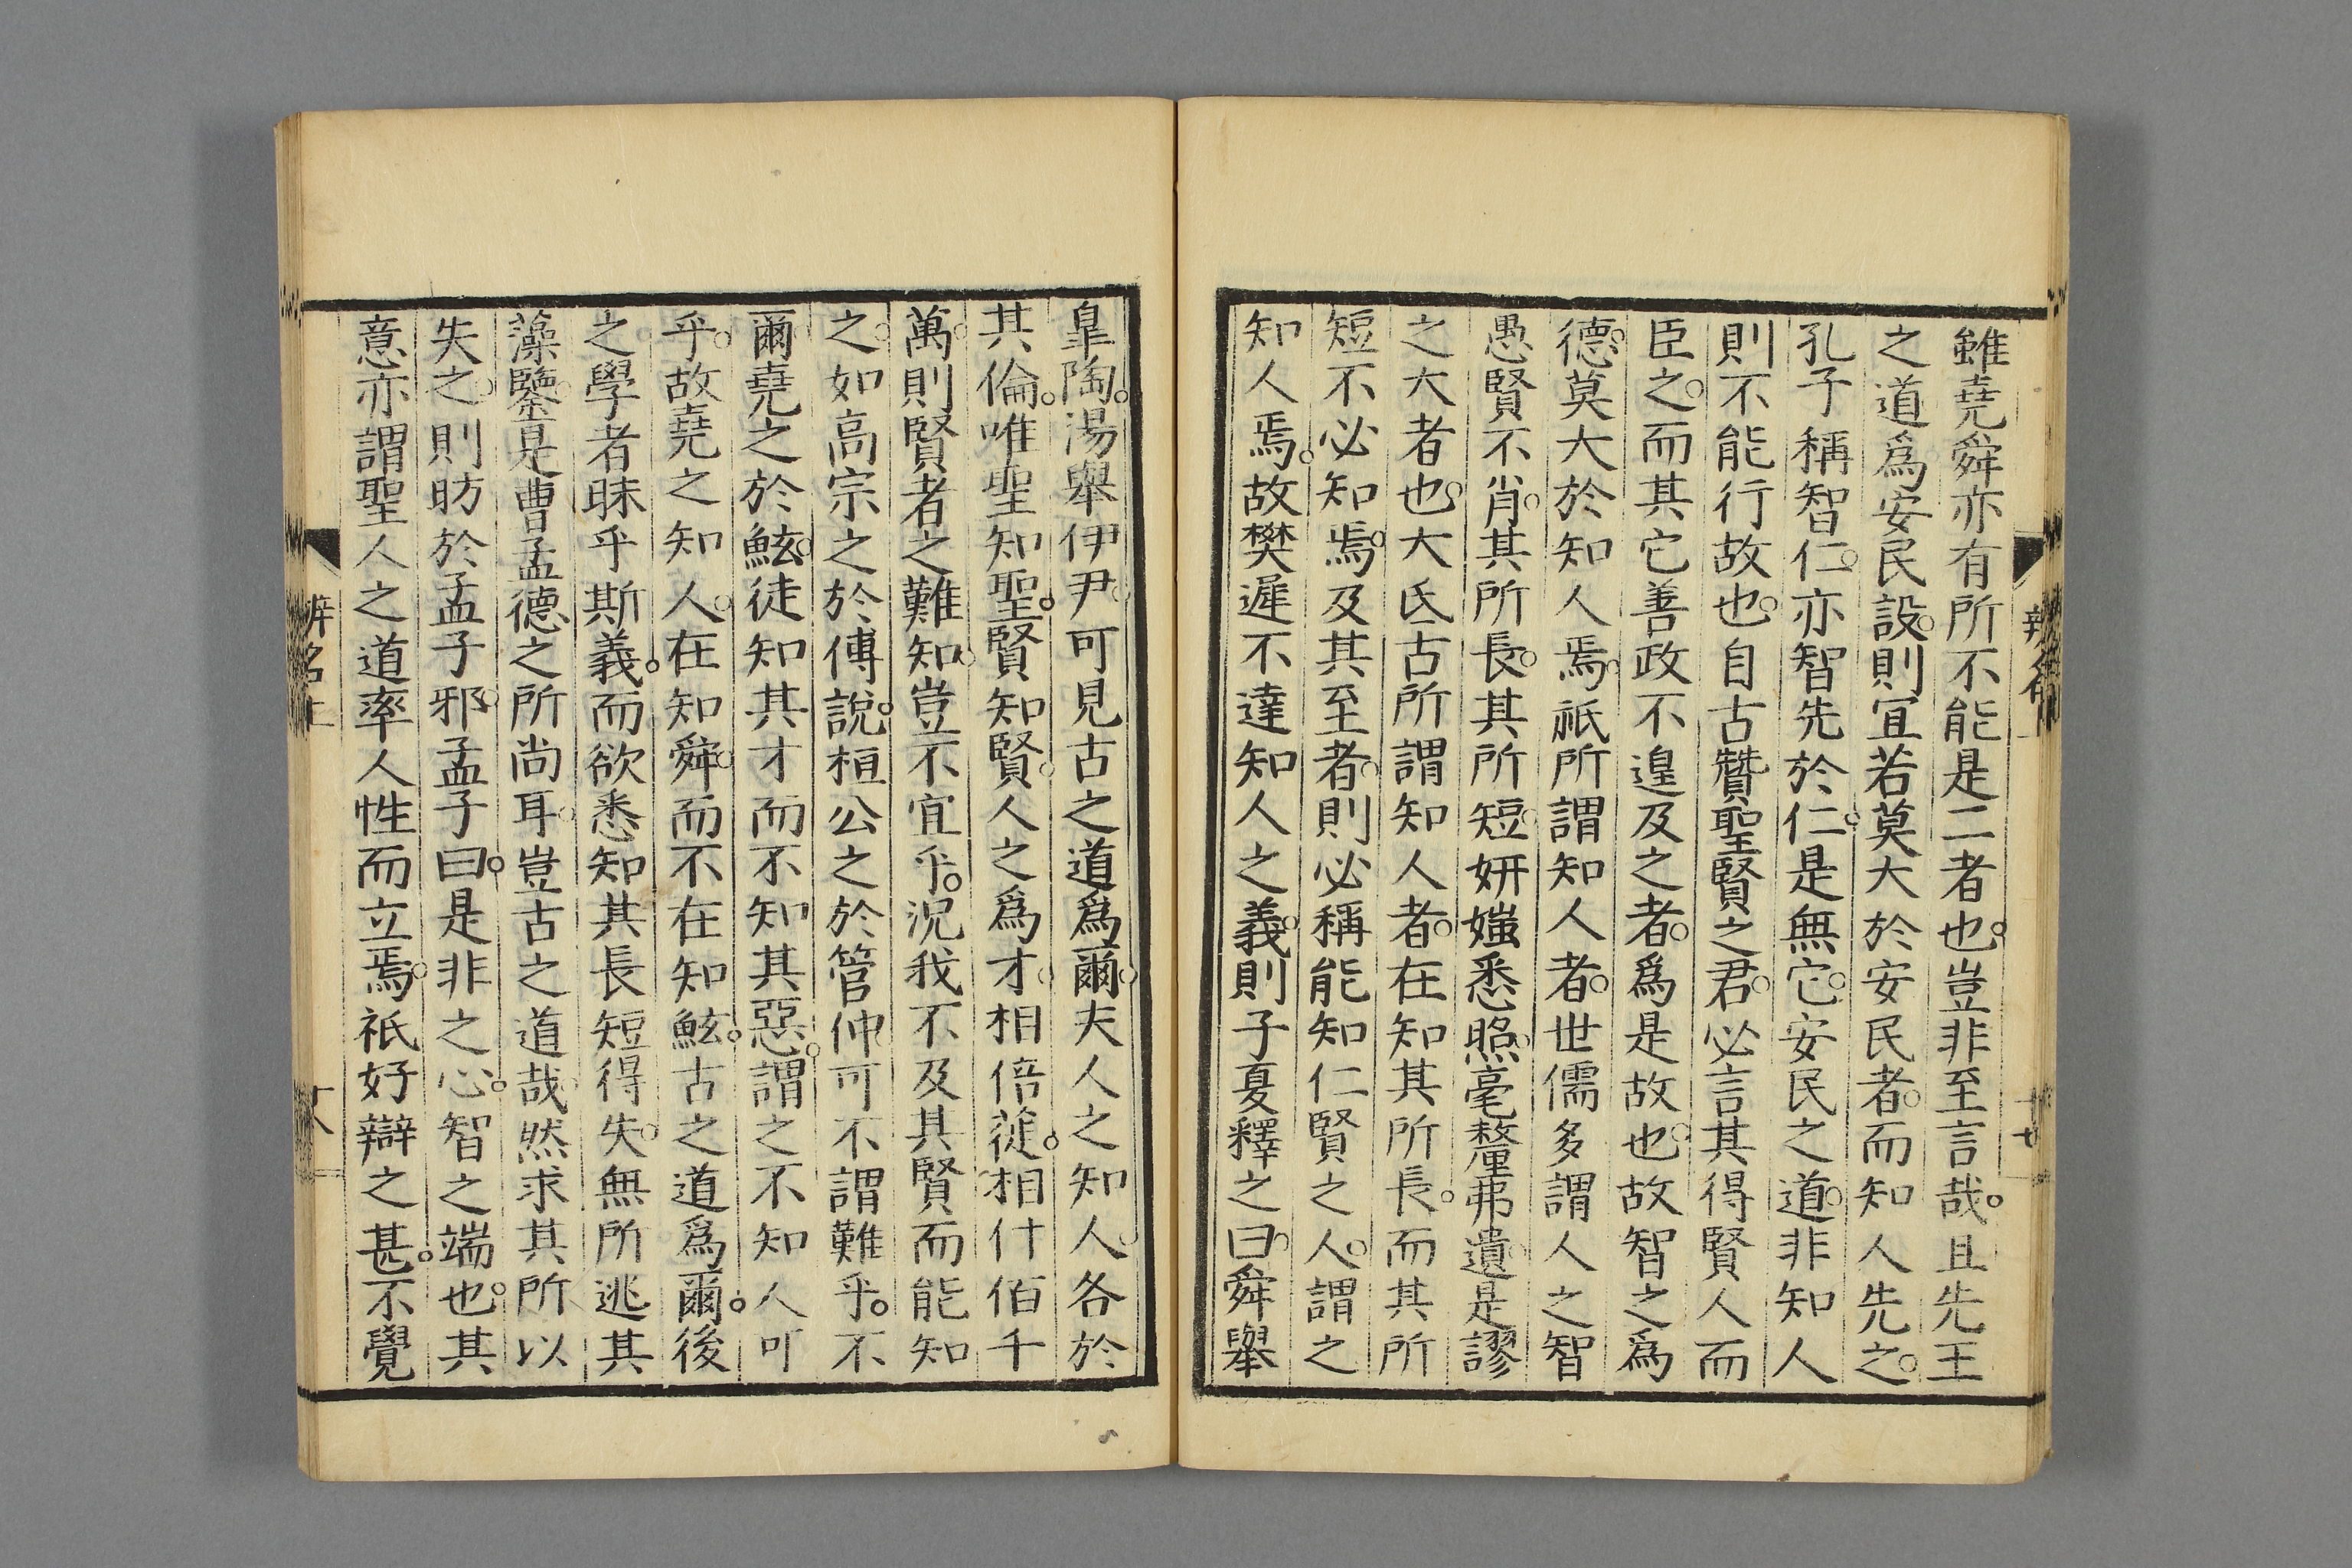 雖堯舜亦有所不能是二者也。豈非至言哉。且先王
之道爲安民設。則宜若莫大於安民者。而知人先之。
孔子稱智仁。亦智先於仁。是無它。安民之道。非知人
則不能行故也。自古贊聖賢之君。必言其得賢人而
臣之。而其它善政不遑及之者。爲是故也。故智之爲
德。莫大於知人焉。祇所謂知人者。世儒多謂人之智
愚賢不肖。其所長。其所短。妍媸悉照。毫釐弗遺。是謬
之大者也。大氐古所謂知人者。在知其所長。而其所
短不必知焉。及其至者。則必稱能知仁賢之人。謂之
知人焉。故樊遲不達知人之義。則子夏釋之曰。舜舉
辨名上
廿七
皐陶。湯舉伊尹。可見古之道爲爾。夫人之知人。各於
其倫。唯聖知聖。賢知賢。人之爲才。相倍蓰。相什佰千
萬。則賢者之難知。豈不宜乎。況我不及其賢而能知
之。如高宗之於傅說。桓公之於管仲。可不謂難乎。不
爾。堯之於鮌。徒知其才而不知其惡。謂之不知人可
乎。故堯之知人。在知舜。而不在知鮌。古之道爲爾。後
之學者昧乎斯義。而欲悉知其長短得失。無所逃其
藻鑒。是曹孟德之所尚耳。豈古之道哉。然求其所以
失之。則昉於孟子邪。孟子曰。是非之心。智之端也。其
意亦謂聖人之道率人性而立焉。祇好辯之甚。不覺
辨名上
廿八